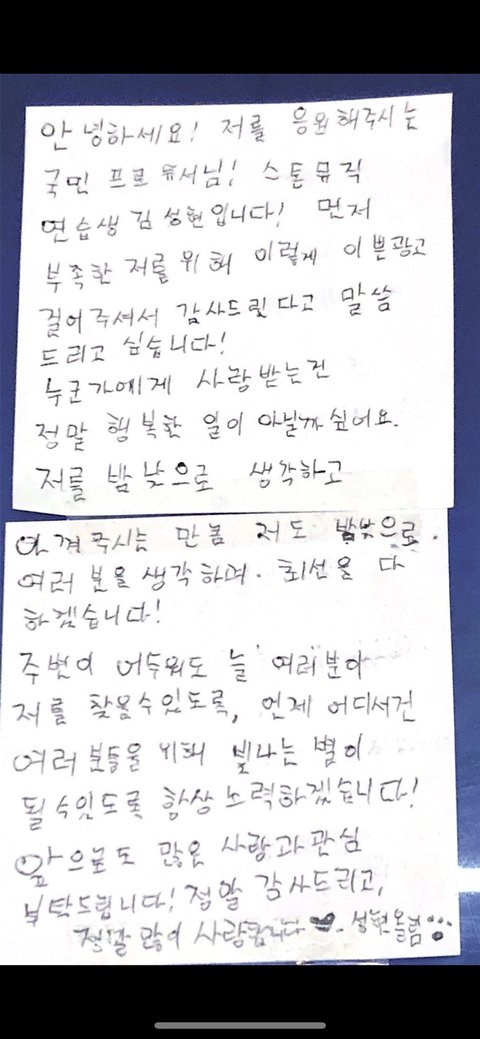 안녕하세요! 저를 응원해주시는
국민 프로듀서님! 스톤뮤직
연습생 김성현입니다! 먼저
부족한 저를 위해 이렇게 이쁜광고
걸어주셔서 감사드린다고 말씀
드리고 싶습니다!
누군가에게 사랑받는건
정말 행복한 일이 아닐까싶어요.
저를 밤낮으로 생각하고
아껴주시는 만큼 저도 밤낮으로.
여러분을 생각하며. 최선을 다
하겠습니다!
주변이 어두워도 늘 여러분이
저를 찾을수있도록, 언제 어디서건
여러분들을 위해 빛나는 별이
될수있도록 항상 노력하겠습니다!
앞으로도 많은 사랑과 관심
부탁드립니다! 정말 감사드리고,
정말 많이 사랑합니다 ♥. 성현올림